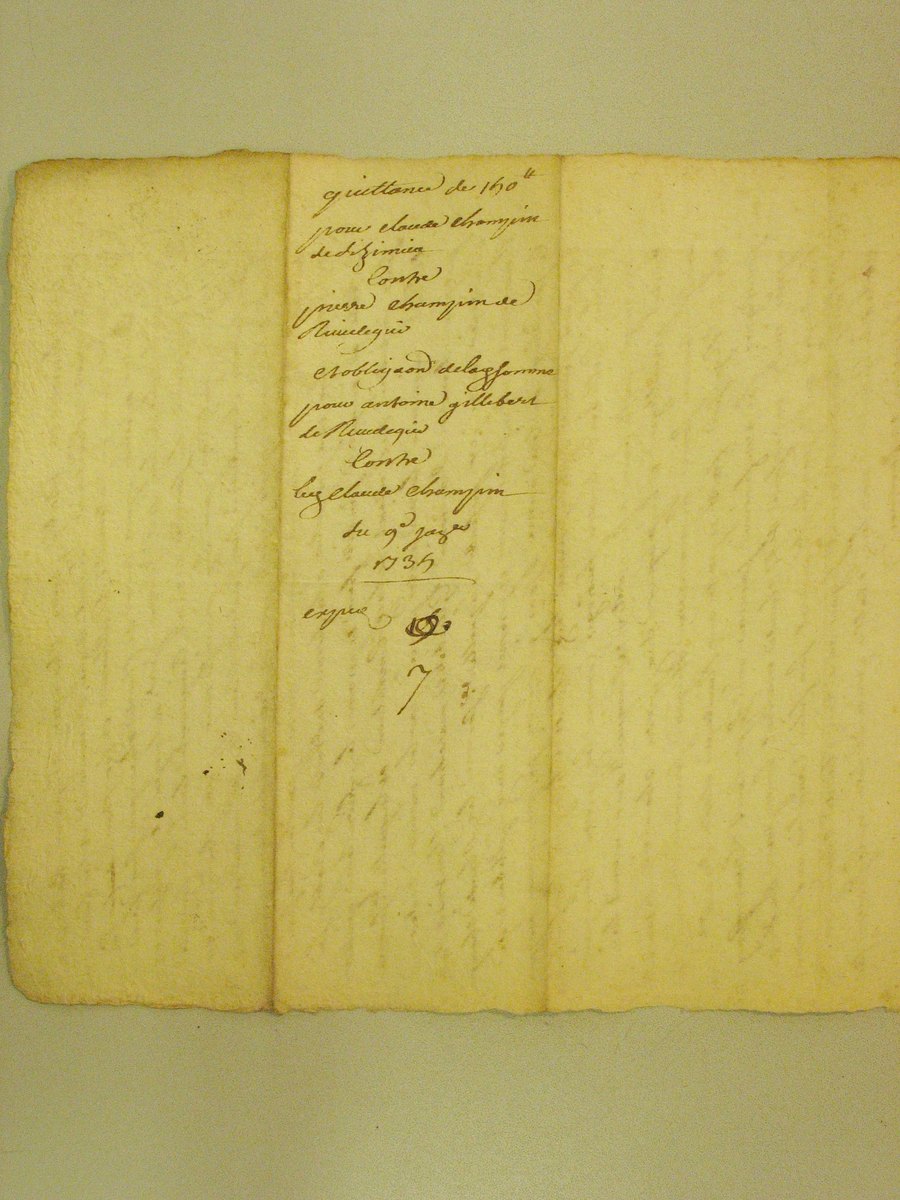 quittance de 150ᵗᵗ
pour claude champin
de dizimieu
Contre
pierre champin de
Ruudegier
et obligaon de lad somme
pour antoine gillebert
de Ruudegier
Contre
led claude champin
du 9e janer
1735
expie
7